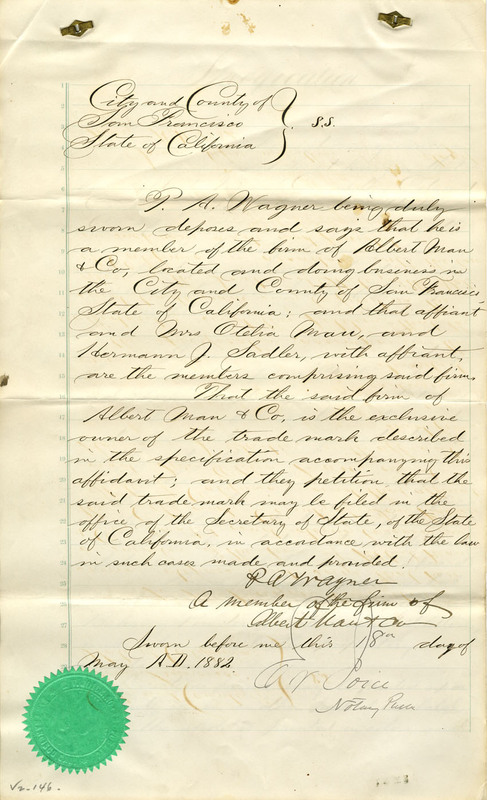 City and County of
San Francisco
State of California } S.S.
P. A. Wagner being duly
sworn deposes and says that he is
a member of the firm of Albert Mau
& Co, located and doing business in
the City and County of San Francisco
State of California; and that affiant
and Mrs Otelia Mau, and
Hermann J. Sadler, with affiant,
are the members comprising said firm.
That the said firm of
Albert Mau & Co, is the exclusive
owner of the trade mark described
in the specification accompanying this
affidavit; and they petition that the
said trade mark may be filed in the
office of the Secretary of State, of the State
of California, in accordance with the law
in such cases made and provided.
P A Wagner
A member of the firm of
Albert Mau & Co
Sworn before me this 18th day of
May A.D. 1882.
Notary Public
V2-146-